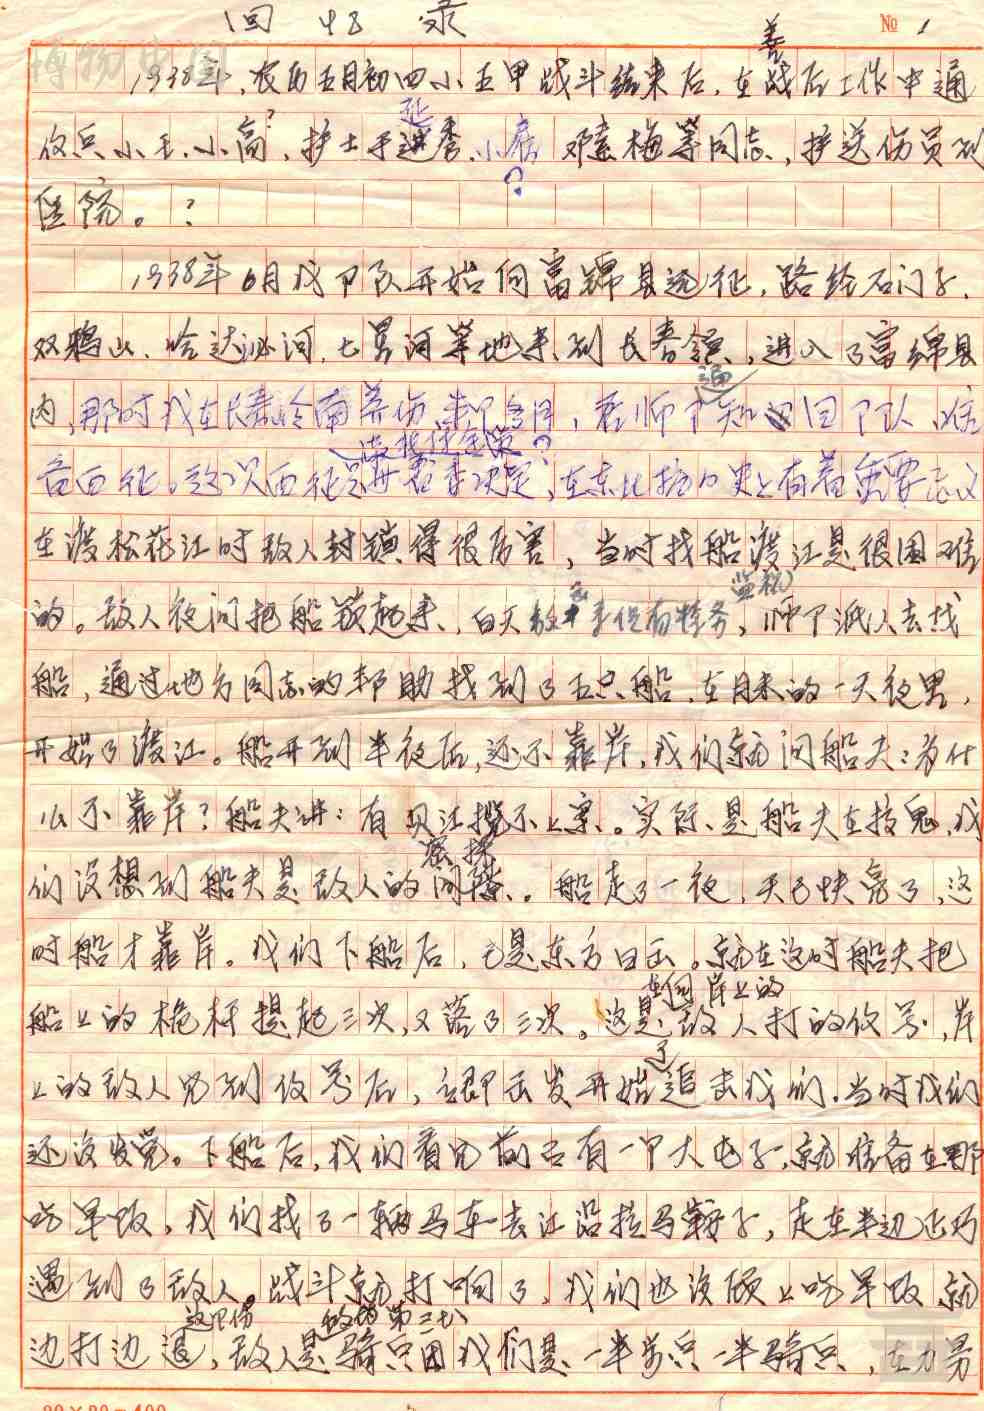 回忆录
№ 1
博物中国
善
1938年，农历五月初四小五甲战斗结束后，在战后工作中通
延
信兵小王、小高，护士于进秀、小唐 邓素梅等同志，护送伤员到
?
医院。?
1938年6月我部队开始向富锦县远征，路经石门子、
双鸭山、哈达泌河，七星河等地来到长春岭，进入了富锦县
通
内，那时我在长春岭南养伤，
看师部知 回部队，准
备西征。这次西征是 决定，在东北抗日史上有着重要意义
在渡松花江时敌人封锁得很厉害，当时找船渡江是很困难
监视
的。敌人夜间把船锁起来，白天 有特务，师部派人去找
船，通过地方同志的帮助找到了五只船，在月末的一天夜里，
开始了渡江。船开到半夜后，还不靠岸，我们就问船夫：为什
么不靠岸？船夫讲：有 江揽不上案。实际是船夫在捣鬼，我
密探
们没想到船夫是敌人的间隙。船走了一夜，天已快亮了，这
时船才靠岸。我们下船后，已是东方白面。就在这时船夫把
在向岸上的
船上的桅杆提起三次，又落了三次。这是敌人打的信号，岸
了
上的敌人见到信号后，立即出发开始追击我们，当时我们
还没发觉。下船后，我们看见前面有一个大屯子，就准备在那
吃早饭，我们找了一辆马车去江沿拉马鞍子，走在半边正巧
遇到了敌人。战斗就打响了，我们也没顾上吃早饭，就
这股伪 的伪第三十八
边打边退，敌人是骑兵团我们是一半步兵一半骑兵，在力易
20×20=400